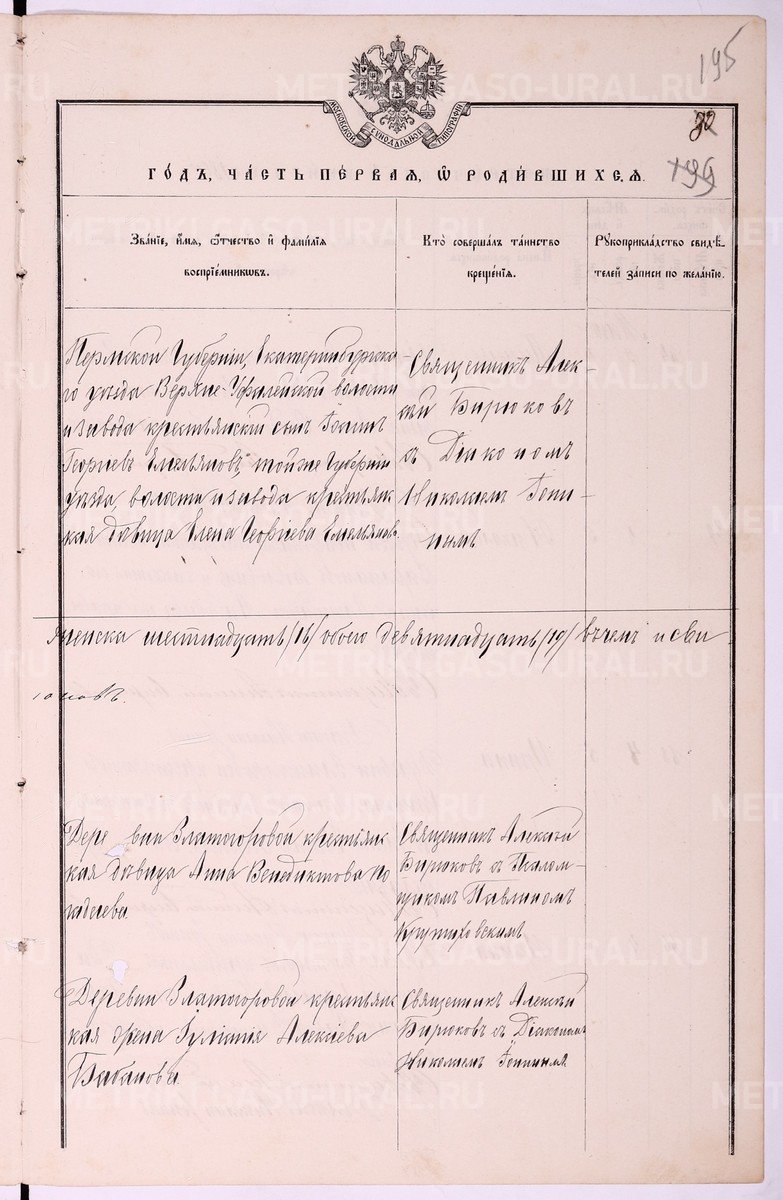 195
МОСКОВСКОЙ СѴНОДАЛЬНОЙ ТИПОГРАФІИ
199
ГО́ДЪ, ЧА́СТЬ ПЕ́РВАЯ, Ѡ҆ РОДИ́ВШИХСЯ.
Зва́нїе, и҆́мя, ѻ҆́тчество и҆ фами́лїя
воспрїе́мникѡвъ.
Кто̀ соверша́лъ та́инство
креще́нїя.
Рꙋкоприкла́дство свидѣ́-
телей за́писи по жела́нїю.
Пермской Губерніи, Екатеринбургска
го уѣзда Верхне-Уфалейской волости
и завода крестьянскій сынъ
Георгіевъ Емельяновъ, той же Губерніи
уѣзда, волости и завода крестьян
ская дѣвица Елена Георгіева Емельянова.
Священникъ Алек-
сѣй Бирюковъ
съ Діакономъ
Николаемъ Топи-
нымъ
женска шестнадцать /16/ обоего девятнадцать /19/ въ чемъ и сви
Деревни Златогоровой крестьян
ская дѣвица Анна Венедиктова По
гадаева
Священникъ Алексѣй
Бирюковъ съ Псалом-
щикомъ Павлиномъ
Крутиховскимъ
Деревни Златогоровой крестьян
ская жена Іуліанія Алексіева
Бабанова
Священникъ Алексѣй
Бирюковъ съ Діакономъ
Николаемъ Топинымъ
METRIKI.GASO-URAL.RU